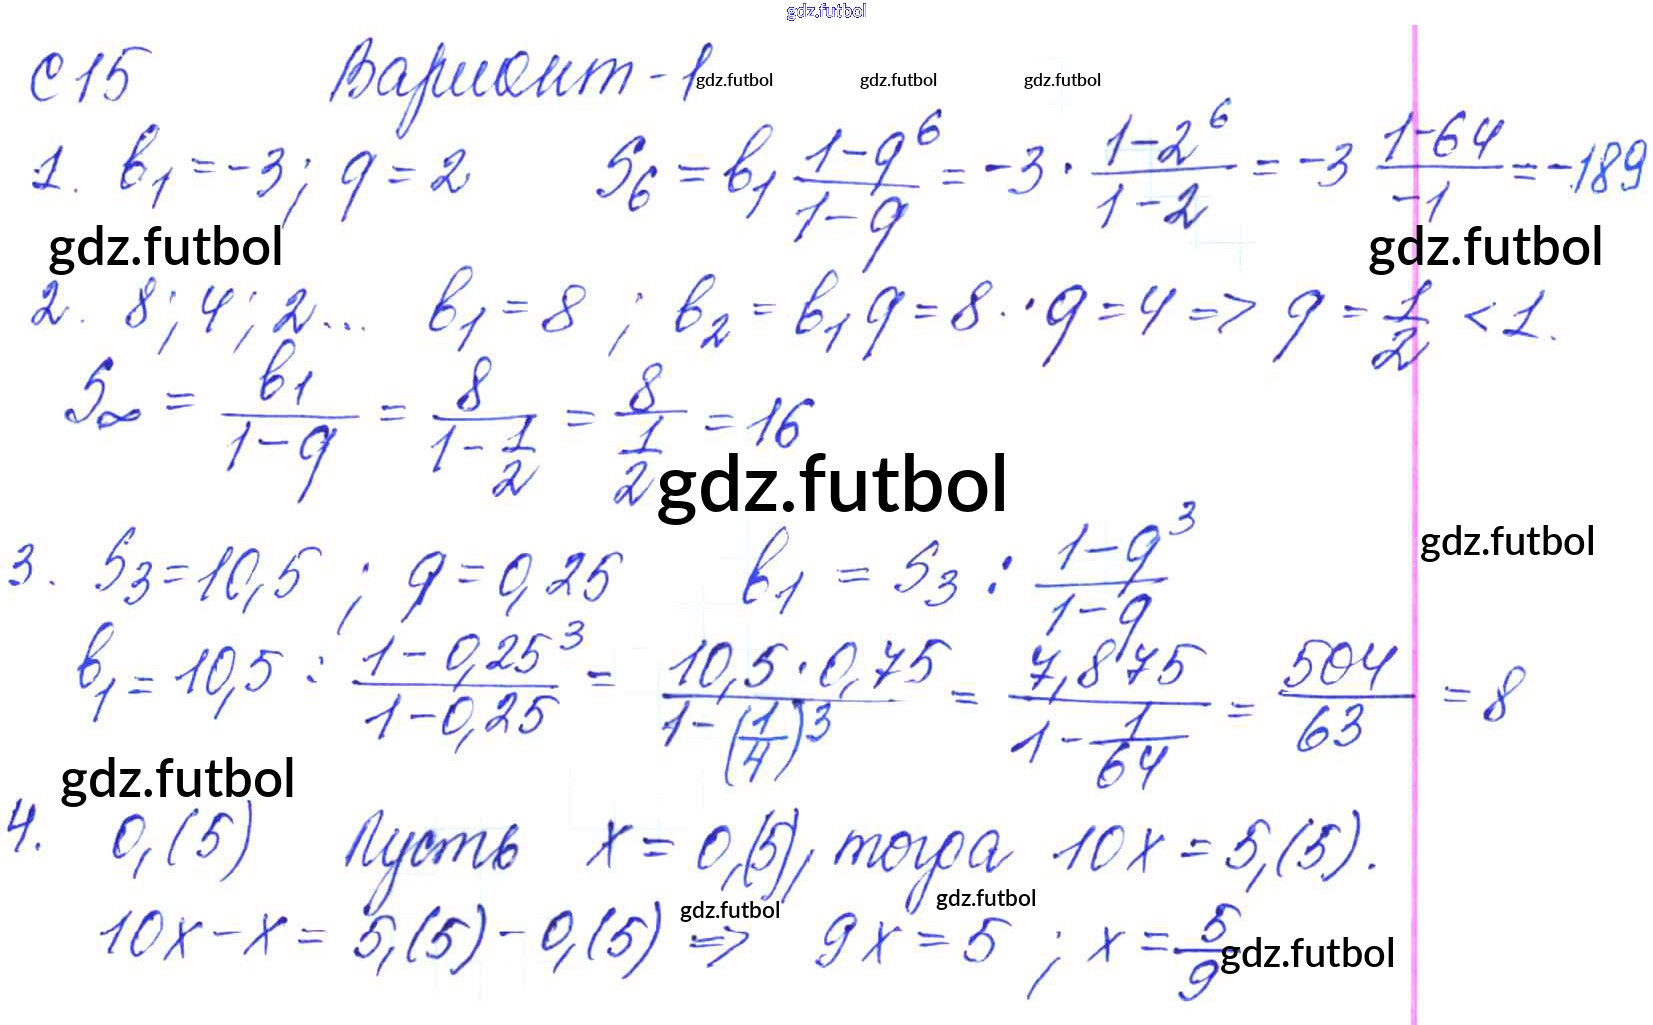 gdz.futbol
С 15 Вариант - 1 gdz.futbol gdz.futbol gdz.futbol
1. b₁ = -3; q = 2 S₆ = b₁ (1-q⁶)/(1-q) = -3 · (1-2⁶)/(1-2) = -3 (1-64)/(-1) = -189
gdz.futbol gdz.futbol
2. 8; 4; 2... b₁ = 8 ; b₂ = b₁q = 8 · q = 4 => q = 1/2 < 1.
S∞ = b₁/(1-q) = 8/(1-1/2) = 8/(1/2) = 16
gdz.futbol
gdz.futbol
3. S₃ = 10,5 ; q = 0,25 b₁ = S₃ : (1-q³)/(1-q)
b₁ = 10,5 : (1-0,25³)/(1-0,25) = (10,5·0,75)/(1-(1/4)³) = 7,875/(1-1/64) = 504/63 = 8
gdz.futbol
4. 0,(5) Пусть x = 0,(5), тогда 10x = 5,(5).
gdz.futbol gdz.futbol
10x - x = 5,(5) - 0,(5) => 9x = 5 ; x = 5/9
gdz.futbol